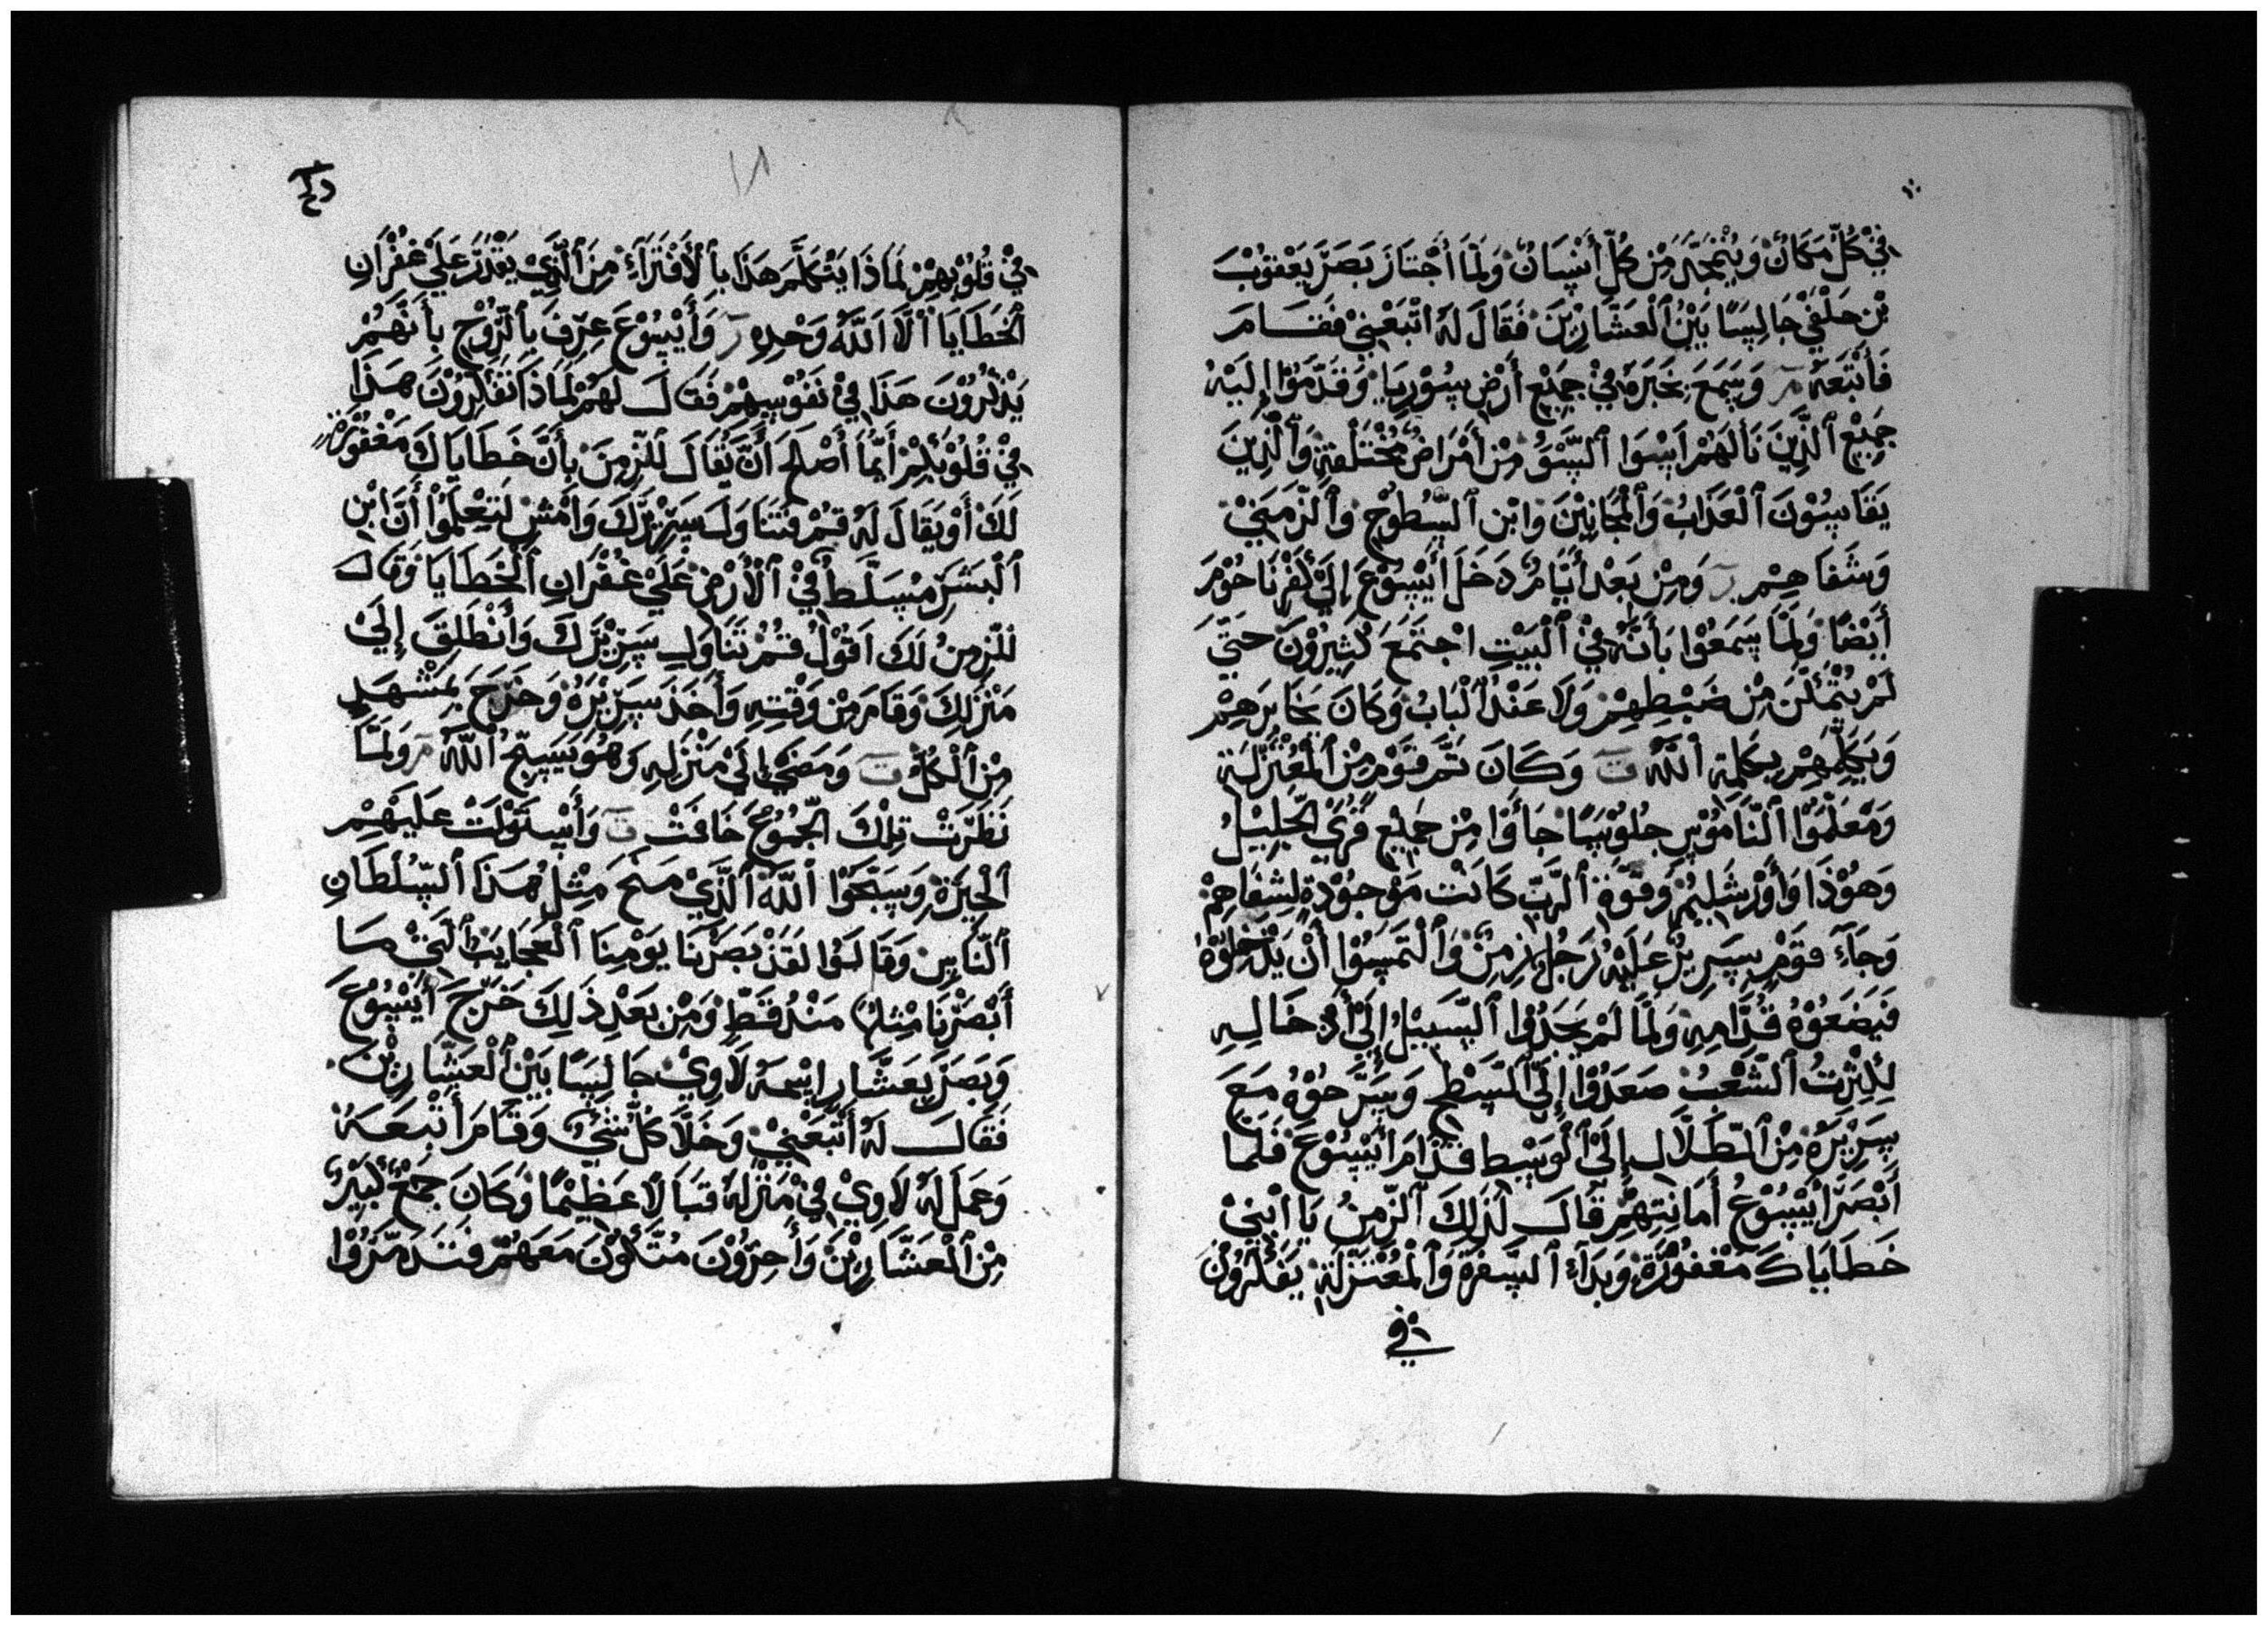 في كل مكان ويمجد من كل أنسان ولما أجتاز بصر يعقوب
بن حلفي جالسًا بين العشارين فقال له اتبعني فقام
فأتبعه م وسمع بخبره في جميع أرض سوريا وقدموا إليه
جميع الذين نالهم اسوا السو من أمراض مختلفة والذين
يقاسون العذاب والمجانين وابن السطوح والزمني
وشفاهم ر ومن بعد أيام دخل أيسوع إلي كفرناحوم
أيضًا ولما سمعوا بأنه في البيت اجتمع كثيرون حتي
لم يتمكن من ضبطهم ولا عند الباب وكان يخابرهم
ويكلمهم بكلمة الله ت وكان ثم قوم من المعتزلة
ومعلموا الناموس جلوسًا جأوا من جميع قري الجليل
وهوذا وأورشليم وقوة الرب كانت موجودة لشفاهم
وجآء قوم بسرير عليه رجل زمن والتمسوا أن يدخلوه
فيضعوه قدامه ولما لم يجدوا السبيل إلي أدخاله
لكثرت الشعب صعدوا إلي السطح وسرحوه مع
سريره من الطلال إلي الوسط قدام أيسوع فلما
أبصر ايسوع أمانتهم قال لذلك الزمن يا ابني
خطاياك مغفورة وبدأ السفرة والمعتزلة يفكرون
في
١٨
في قلوبهم لماذا يتكلم هذا بالأفترآء من الذي يقدر علي غفران
الخطايا الا الله وحده ر وأيسوع عرف بالروح بأنهم
يذكرون هذا في نفوسهم فقال لهم لماذا تفكرون هذا
في قلوبكم أيما أصلح أن يقال للزمن بأن خطاياك مغفورة
لك أو يقال له قم فتناول سريرك وامش لتعلموا أن ابن
البشر مسلط في الأرض علي غفران الخطايا وقال
للزمن لك اقول قم تناول سريرك وأنطلق إلي
منزلك وقام من وقته وأخذ سريره وخرج بمشهد
من الكل ت ومضي الي منزله وهو يسبح الله م ولما
نظرت تلك الجموع خافت ت وأستولت عليهم
الحيرة وسبحوا الله الذي منح مثل هذا السلطان
الناس وقالوا لقد بصرنا يومنا العجايب التي ما
أبصرنا مثلها منذ قط ومن بعد ذلك خرج أيسوع
وبصر بعشار اسمه لاوي جالسًا بين العشارين
فقال له أتبعني وخلا كل شي وقام أتبعه
وعمل له لاوي في منزله قبالا عظيمًا وكان جمع كبير
من العشارين وأخرون متكون معهم فتدمروا